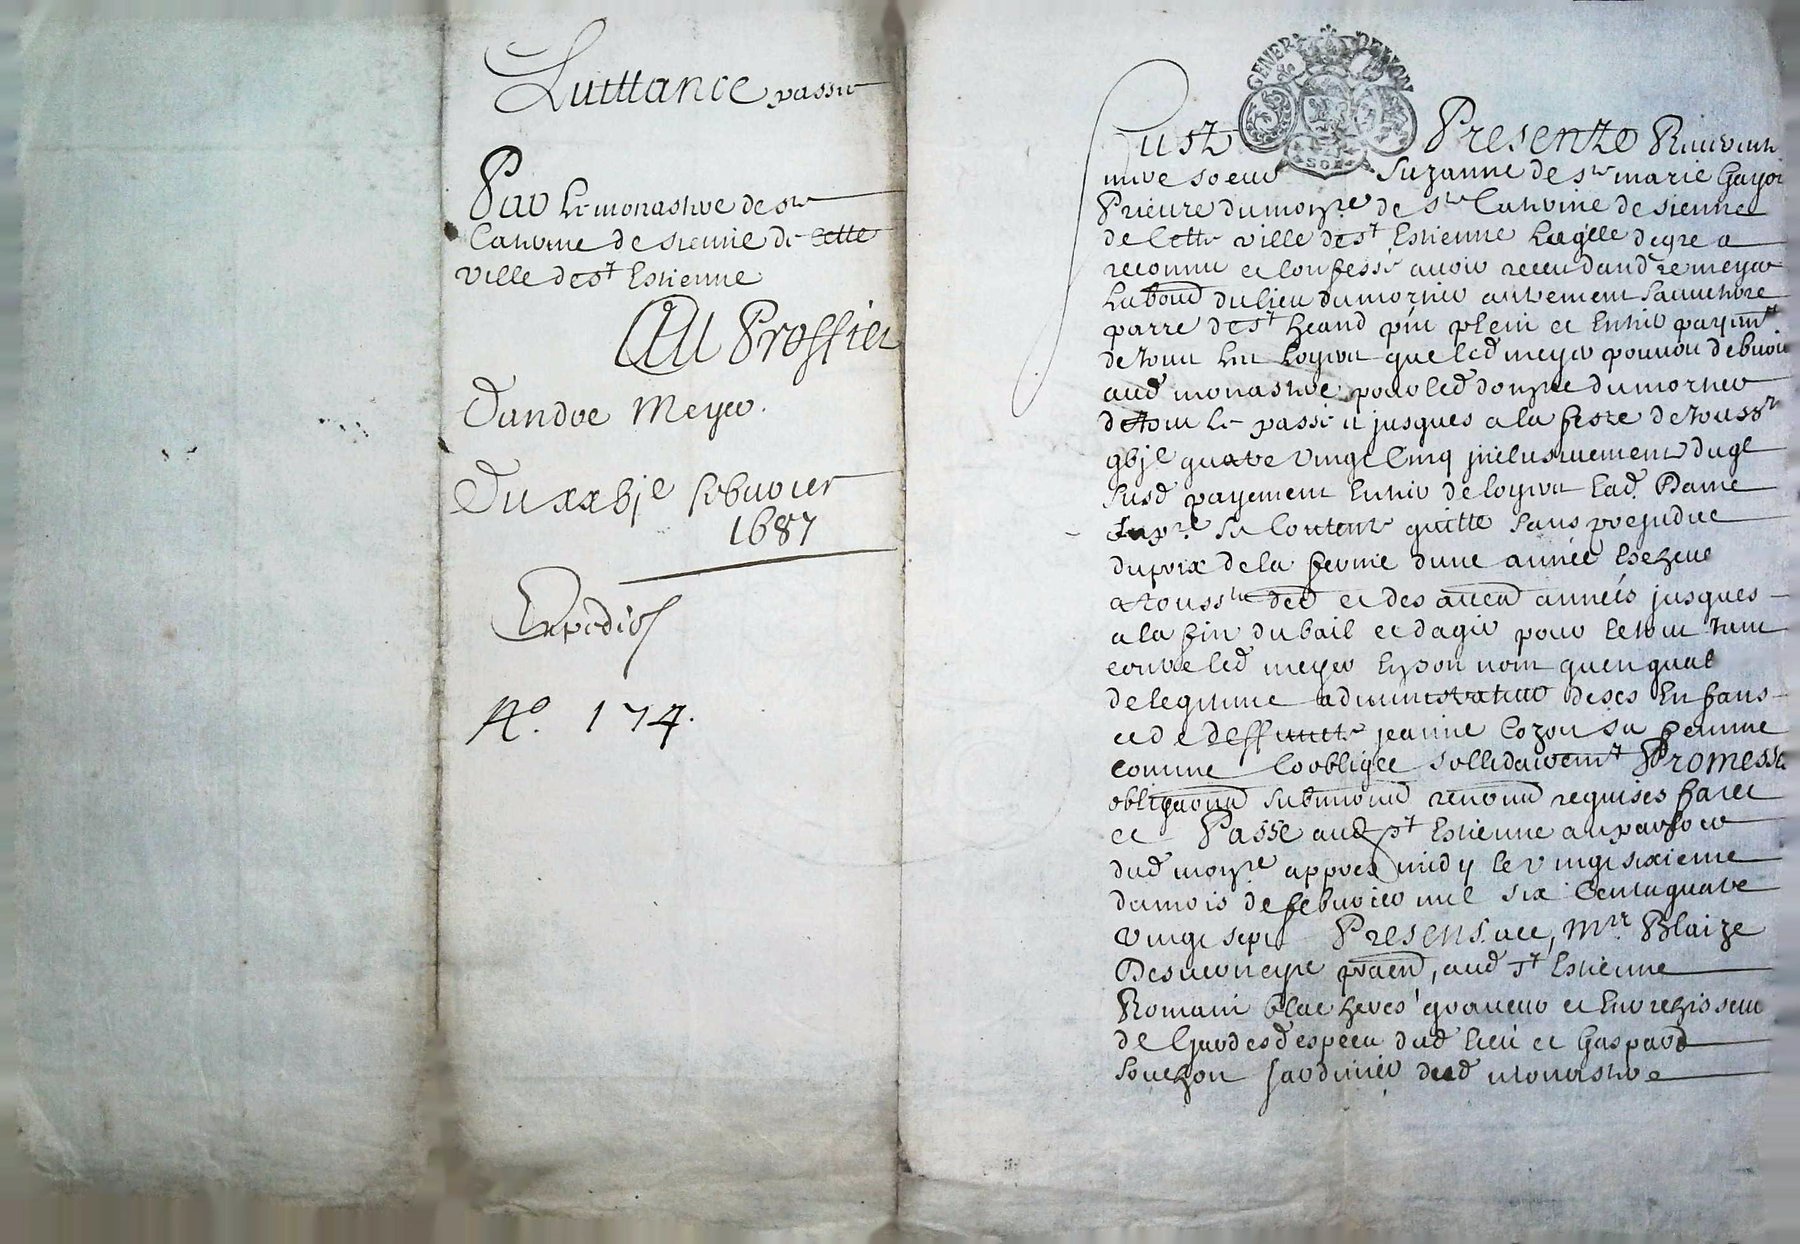 Quittance passee
Par le monastere de ste
Catherine de sienne de cette
ville de st Estienne
Au Prossier
Dandre Meyer.
Du xxbje febvrier
1687
Expedié
No. 174.
GENER DE LYON
SOL
Fust Presente Reverende
mere soeur Suzanne de ste marie Gayot
Prieure du monre de ste Catherine de sienne
de cette ville de st Estienne Laqlle de gre a
reconnu et confesse avoir receu dandré meyer
laboud du lieu du mornier autrement
parre de st heand plein et entier payemt
de tous les que led meyer pouvoit debvoir
aud monastere pour led domne du mornier
de tout le passé et jusques a la feste de toussts
gbje quatre vingt Cinq inclusivement duql
susd payement entier de led. Dame
se contente quitte sans prejudice
du prix de la ferme dune année escheue
a tousste ded et des aued années jusques
a la fin du bail et dagir pour le tout tant
contre led meyer en son nom quen qual
de legitime administrateur de ses enfans
et de deffuncte jeanne Cozon sa femme
comme Coobligee sollidairemt Promesses
obligaond submiond renond requises faict
et Passé aud st Estienne au parloir
dud monre appres midy le vingt sixieme
du mois de febvrier mil six Cent quatre
vingt sept Presens. Mre Blaize
praend, aud st Estienne
Romain blacheres graveur et
de Gardes despeea dud lieu et Gaspard
Souchon Jardinier dud monastere